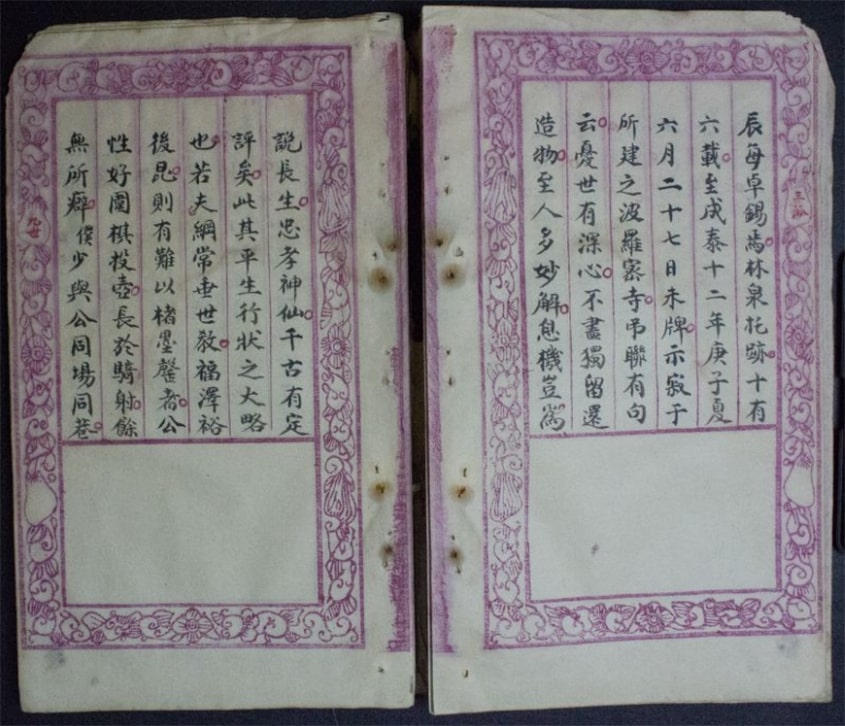 辰每卓錫焉林泉托跡十有
六載至成泰十二年庚子夏
六月二十七日未牌示寂于
所建之波羅密寺吊聯有句
云憂世有深心不盡獨留還
造物至人多妙解息機豈爲
說長生忠孝神仙千古有定
評矣此其平生行狀之大略
也若夫綱常垂世教福澤裕
後昆則有難以楮墨罄者公
性好圍棋投壺長於騎射餘
無所癖僕少與公同場同巷